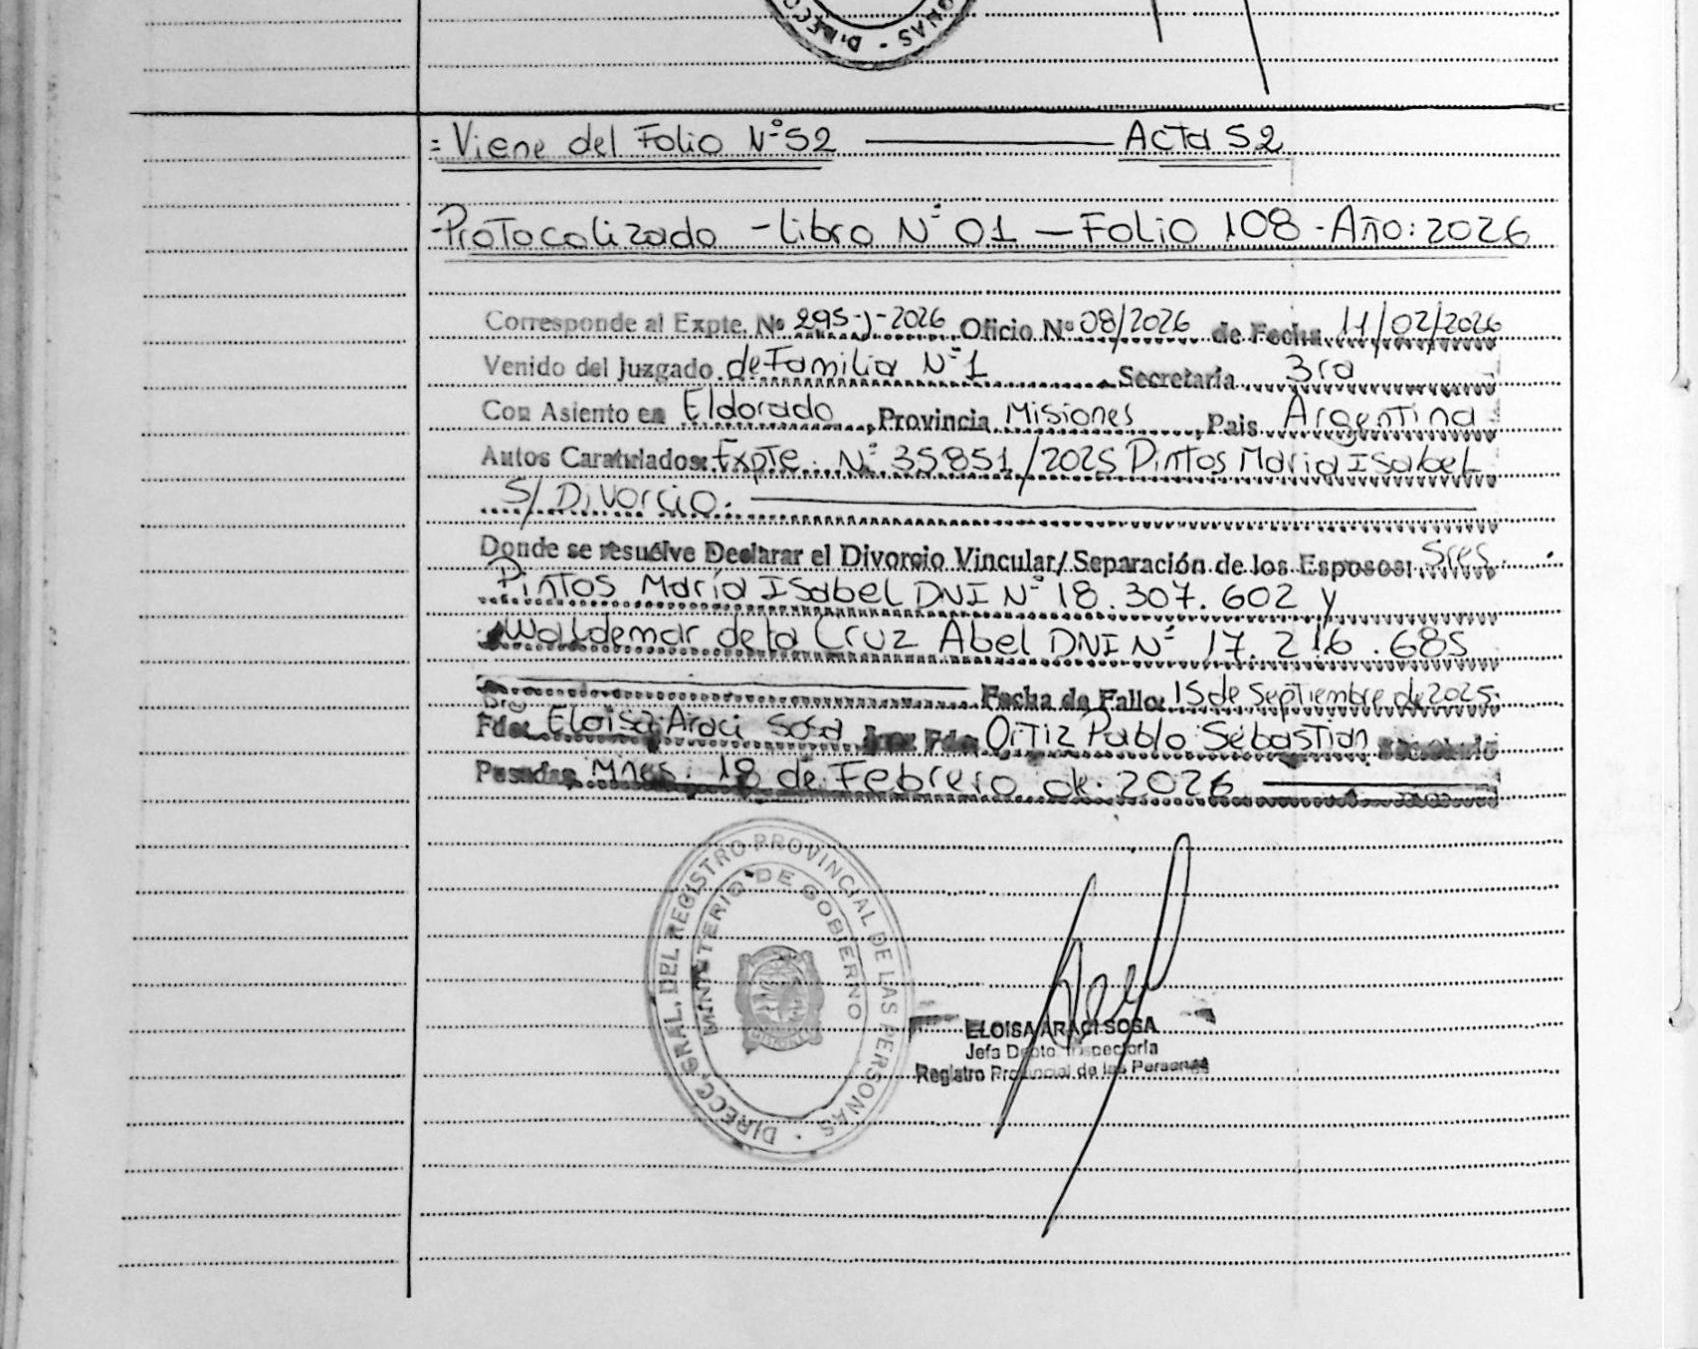 DIRECC - ONAS
= Viene del Folio N° 52 ———— Acta 52
- Protocolizado - Libro N° 01 — Folio 108 - Año: 2026
Corresponde al Expte. Nº 295-J-2026 Oficio Nº 08/2026 de Fecha 11/02/2026
Venido del Juzgado de Familia N° 1 Secretaría 3ra
Con Asiento en Eldorado, Provincia Misiones, Pais Argentina
Autos Caratulados: Expte. N° 35851/2025 Pintos Maria Isabel
S/ Divorcio.
Donde se resuelve Declarar el Divorcio Vincular/ Separación de los Esposos: Sres.
Pintos María Isabel DNI N° 18.307.602 y
Waldemar de la Cruz Abel DNI N° 17.216.685
Fecha de Fallo: 15 de Septiembre de 2025.
Fdo: Dra Eloisa Araci Sosa Juez Fdo: Ortiz Pablo Sebastian Secretario
Posadas, Mnes. 18 de Febrero de 2026
DIRECC. GRAL. DEL REGISTRO PROVINCIAL DE LAS PERSONAS -
MINISTERIO DE GOBIERNO
ELOISA ARACI SOSA
Jefa Dpto. Inspectoría
Registro Provincial de las Personas